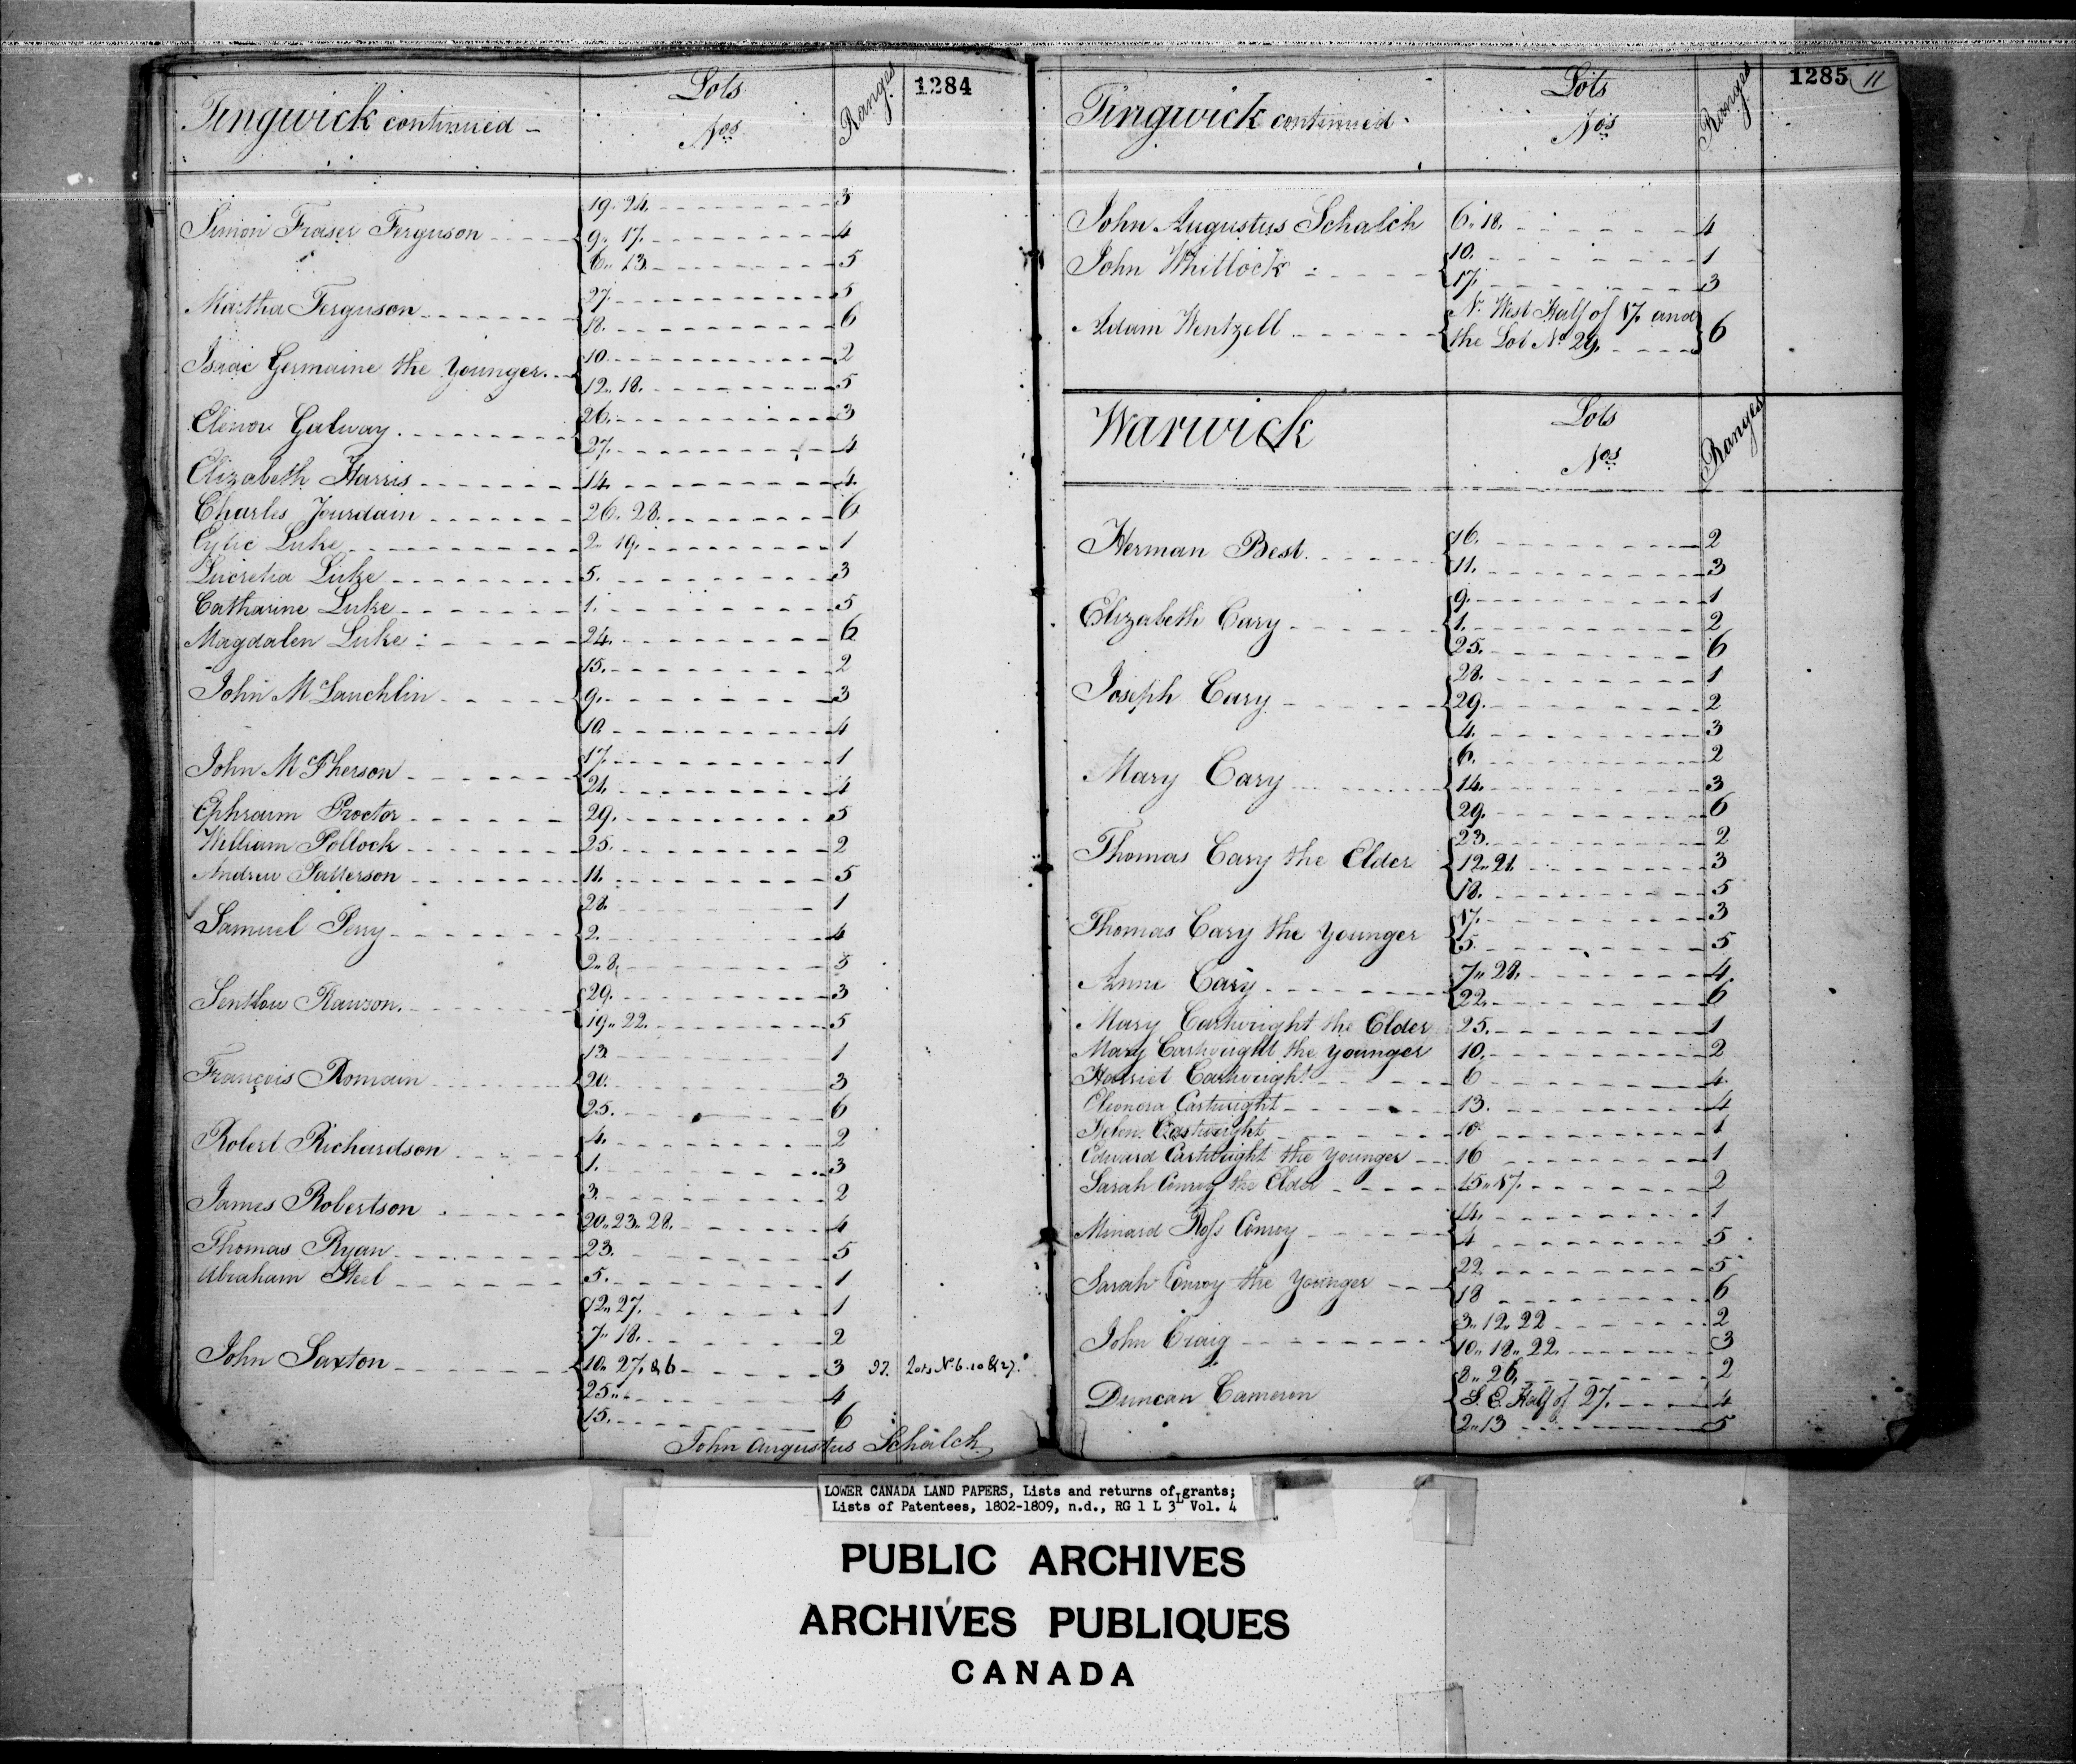 1284
Tingwick continued -
Lots
Nos
Ranges
19. 24. 3
Simon Fraser Ferguson 9. 17. 4
6. 13. 5
Martha Ferguson 27. 5
18. 6
Isaac Germaine the Younger. 10. 2
12. 18. 5
Elenor Galway. 26. 3
27. 4
Elizabeth Harris 14. 4.
Charles Jourdain 26. 28. 6
Luke 2. 19. 1
Lucretia Luke 5. 3
Catharine Luke 1. 5
Magdalen Luke 24. 6
15. 2
John McLauchlin 9. 3
10 4
John McPherson 17. 1
21. 4
Ephraim Proctor 29. 5
William Pollock 25. 2
Andrew Patterson 11. 5
28. 1
Samuel Perry 2. 4
2. 8. 5
Rawson. 29. 3
19. 22. 5
13. 1
François Romain 20. 3
25. 6
Robert Richardson 4. 2
1. 3
James Robertson 3. 2
20. 23. 28. 4
Thomas Ryan 23. 5
Abraham Steel 5. 1
12. 27. 1
7. 18. 2
John Saxton 10. 27. & 6 3 27. Lots No 6. 10 & 27.
25. 4
15. 6
John Augustus Schalch
1285 11
Tingwick continued
Lots
Nos
Ranges
John Augustus Schalch 6. 18. 4
John Whitlock 10. 1
17. 3
Adam Wentzell N. West Half of 17. and
the Lot No 29. 6
Warwick
Lots
Nos
Ranges
Herman Best. 16. 2
11. 3
9. 1
Elizabeth Cary 1. 2
25. 6
28. 1
Joseph Cary 29. 2
4. 3
6. 2
Mary Cary 14. 3
29. 6
23. 2
Thomas Cary the Elder 12. 21. 3
18. 5
Thomas Cary the Younger 17. 3
5. 5
Anne Cary 7. 28. 4.
22. 6
Mary Cartwright the Elder 25. 1
Mary Cartwright the Younger 10. 2
Harriet Cartwright 6 4.
Eleonora Cartwright 13. 4
Helen Cartwright 10 1
Edward Cartwright the Younger 16 1
Sarah Conroy the Elder 15. 17. 2
Minard Ross Conroy 14. 1
4 5
Sarah Conroy the Younger 22 5
18 6
John Craig 3. 12. 22 2
10. 18. 22. 3
8. 26. 2
Duncan Cameron S. E. Half of 27. 4
2. 13 5
LOWER CANADA LAND PAPERS, Lists and returns of grants;
Lists of Patentees, 1802-1809, n.d., RG 1 L 3L Vol. 4
PUBLIC ARCHIVES
ARCHIVES PUBLIQUES
CANADA